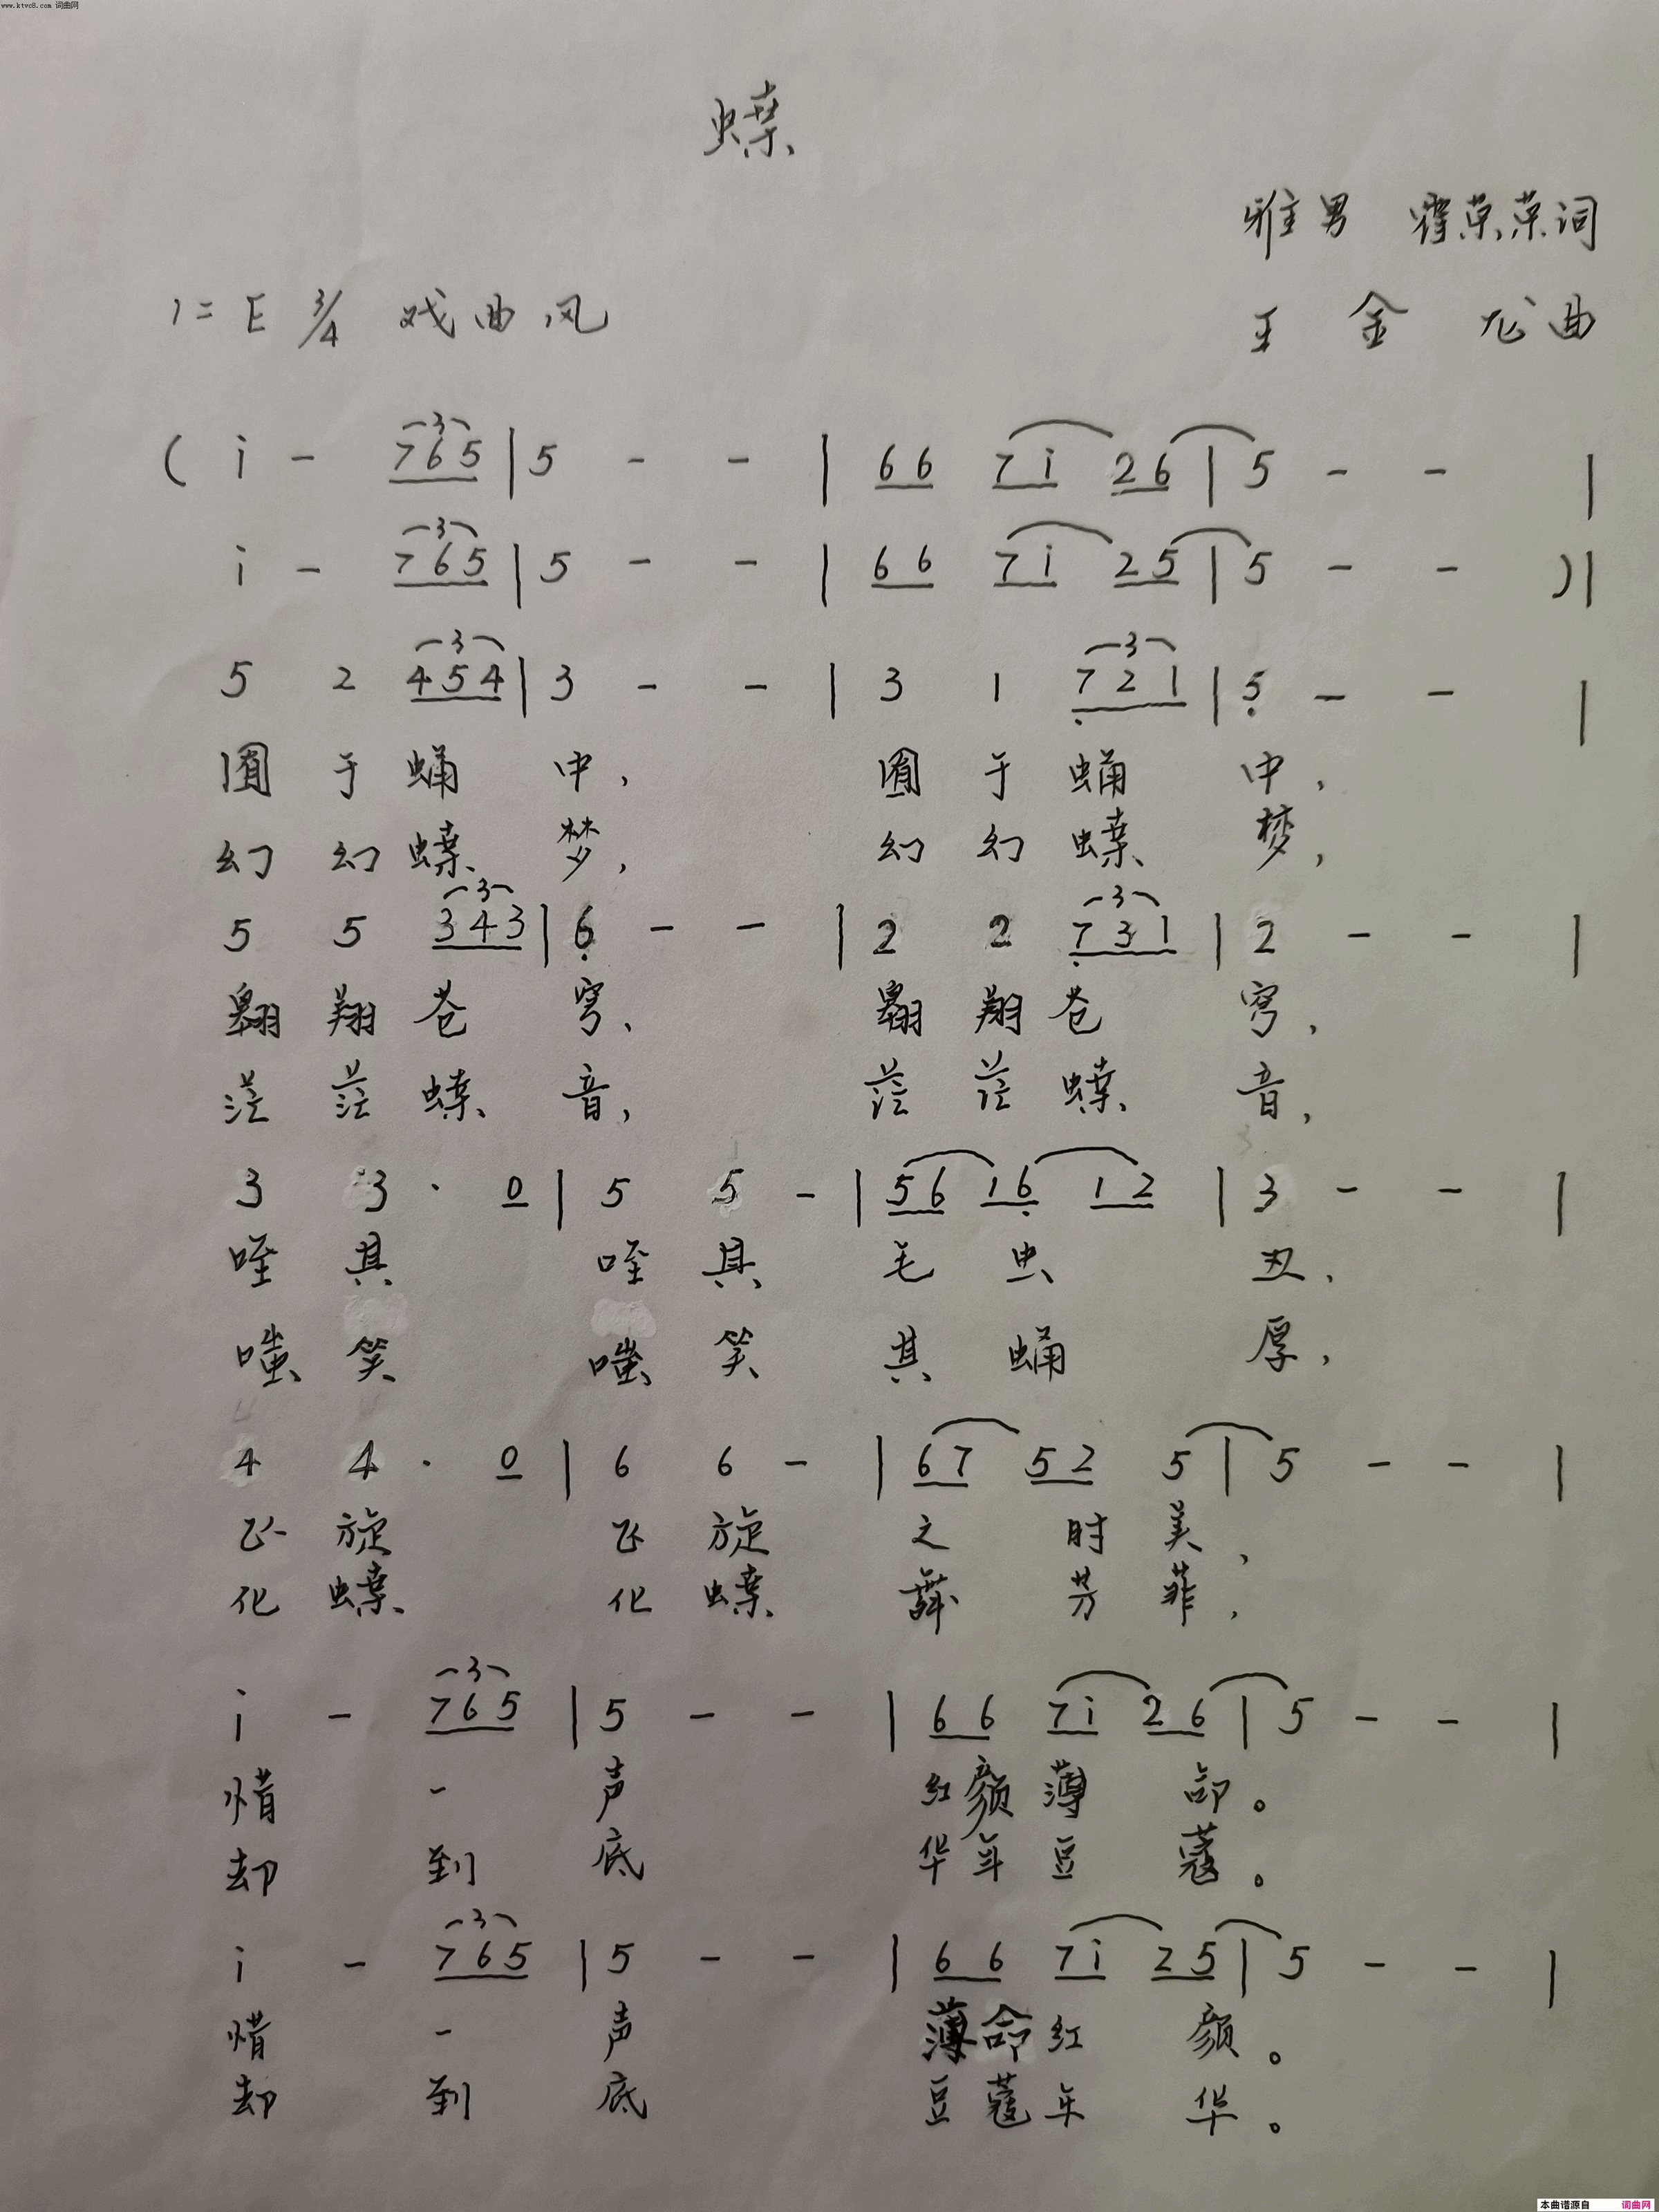 www.ktvc8.com 词曲网
蝶
雅男 霍荣荣词
1=E 3/4 戏曲风 王金龙曲
( i - 765 | 5 - - | 66 7i 26 | 5 - - |
i - 765 | 5 - - | 66 7i 25 | 5 - - )|
5 2 454 | 3 - - | 3 1 721 | 5 - - |
囿于蛹中, 囿于蛹中,
幻幻蝶梦, 幻幻蝶梦,
5 5 343 | 6 - - | 2 2 731 | 2 - - |
翱翔苍穹、 翱翔苍穹,
茫茫蝶音, 茫茫蝶音,
3 3 · 0 | 5 5 - | 56 16 12 | 3 - - |
咥其 咥其 毛虫 丑,
嗤笑 嗤笑 其蛹 厚,
4 4 · 0 | 6 6 - | 67 52 5 | 5 - - |
飞旋 飞旋 之 时 美,
化蝶 化蝶 舞 芳 菲,
i - 765 | 5 - - | 66 7i 26 | 5 - - |
惜 一 声 红颜薄 命。
却 到 底 华年豆 蔻。
i - 765 | 5 - - | 66 7i 25 | 5 - - |
惜 一 声 薄命红 颜。
却 到 底 豆蔻年 华。
本曲谱源自 词曲网